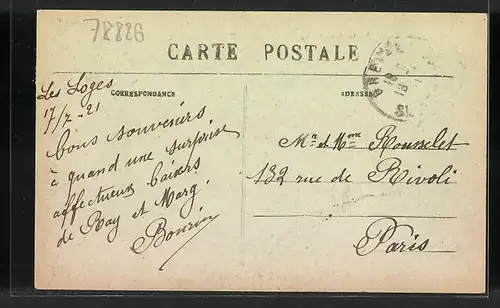 78826
CARTE POSTALE
CORRESPONDANCE
ADRESSE
Les Loges
17/7-21
bons souvenirs
à quand une surprise
affectueux baisers
de Ray et Marg
Mr et Mme Rousselet
132 rue de Rivoli
Paris